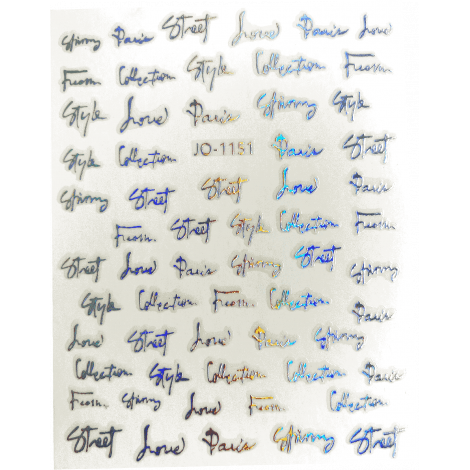 Spinny Paris Street Love Paris Love
Fuosm. Collection. Style Collection. Fuosm.
Style Love Paris Spinny Style
Style Collection. JO-1151 Paris Street
Spinny Street Street Love Paris
Fuosm. Street Style Collection. Fuosm.
Street Love Paris Spinny Street Spinny
Style Collection. Fuosm. Collection. Paris
Love Street Love Paris Spinny
Collection. Style Collection. Collection. Paris
Fuosm. Spinny Love Fuosm. Collection.
Street Love Paris Spinny Street